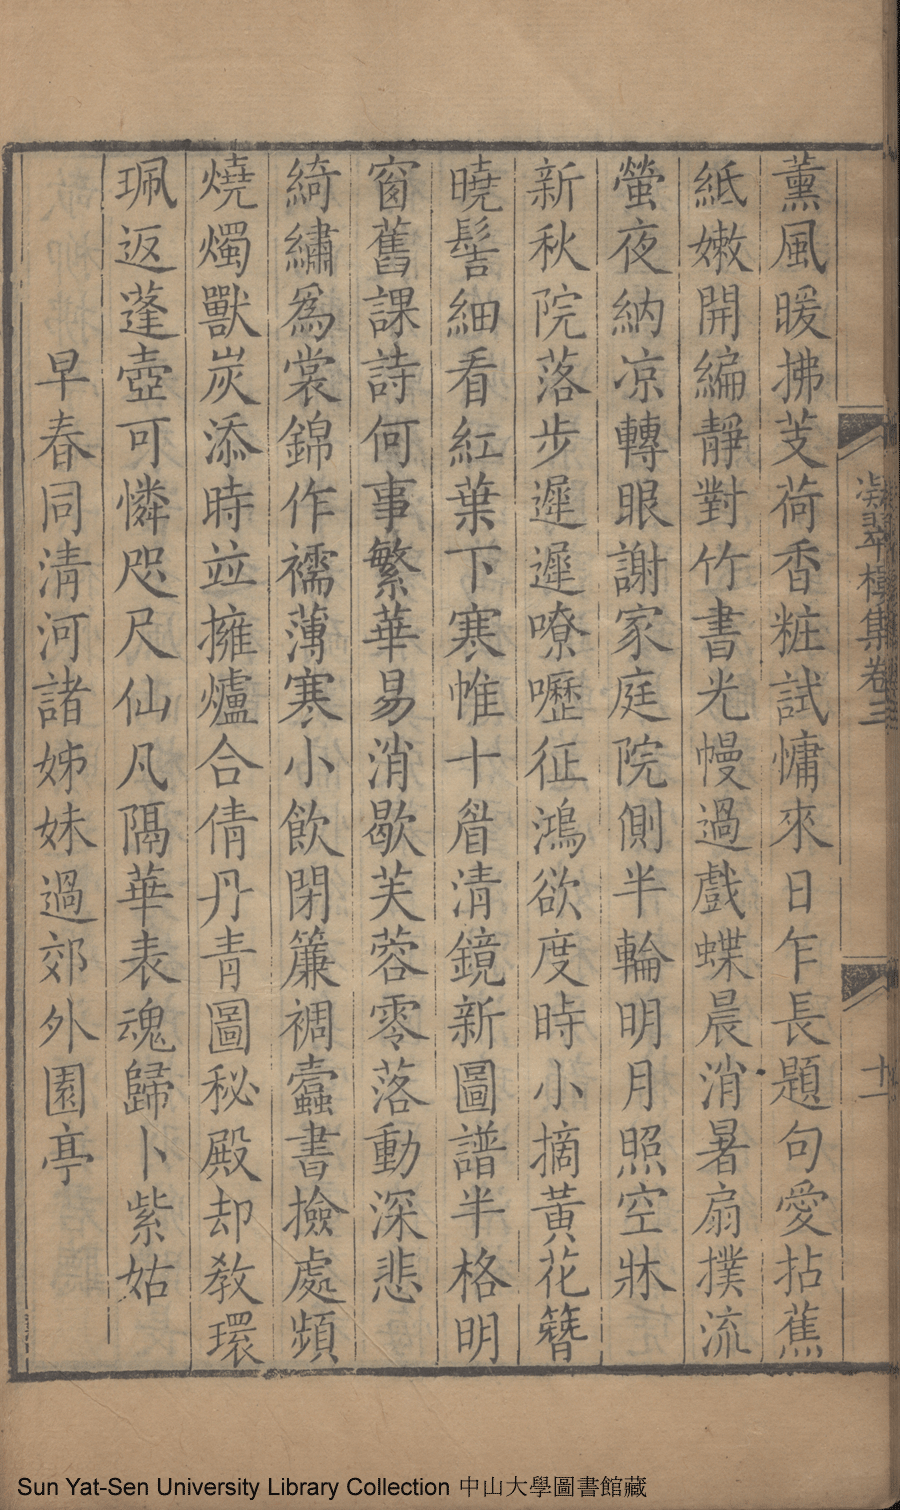 薰風暖拂芰荷香粧試慵來日乍長題句愛拈蕉
紙嫩開編靜對竹書光幔過戲蝶晨消暑扇撲流
螢夜納凉轉眼謝家庭院側半輪明月照空牀
新秋院落步遲遲嘹嚦征鴻欲度時小摘黃花簪
曉髻細看紅葉下寒帷十眉清鏡新圖譜半格明
窗舊課詩何事繁華易消歇芙蓉零落動深悲
綺繡爲裳錦作襦薄寒小飲閉簾裯蠹書撿處頻
燒燭獸炭添時竝擁爐合倩丹青圖秘殿却教環
珮返蓬壺可憐咫尺仙凡隔華表魂歸卜紫姑
早春同清河諸姊妹過郊外園亭
凝翠樓集卷三
十一
Sun Yat-Sen University Library Collection 中山大學圖書館藏